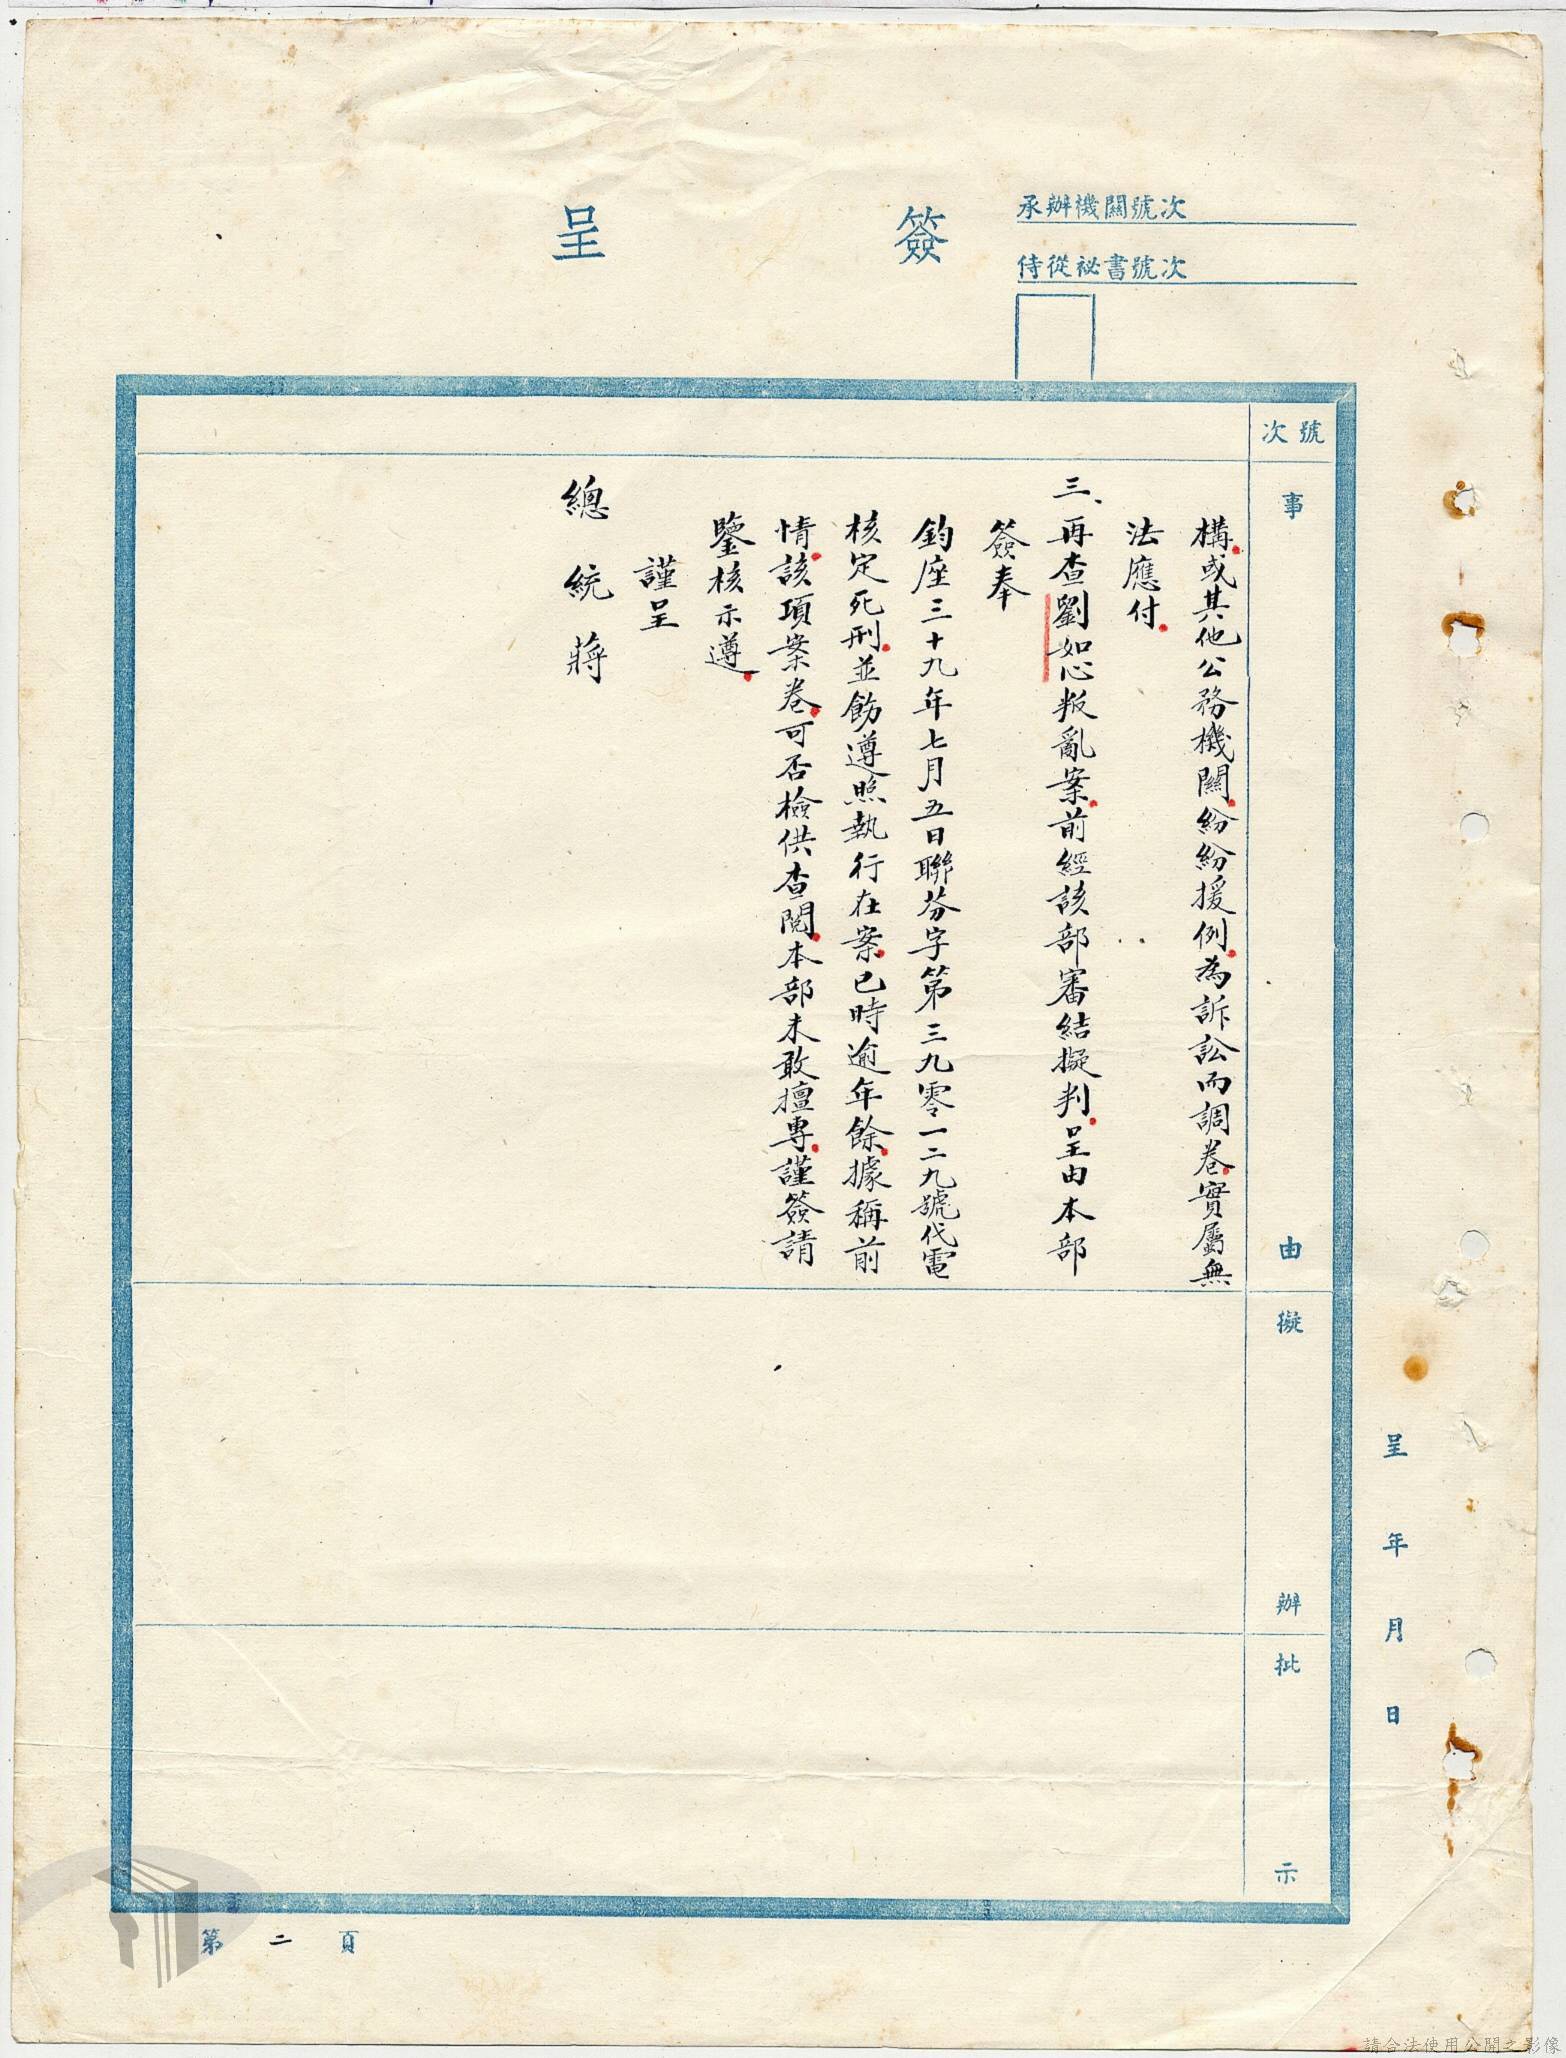 承辦機關號次
侍從祕書號次
簽呈
號次
事由
擬辦
批示
構或其他公務機關紛紛援例為訴訟而調卷實屬無
法應付
三、再查劉如心叛亂案前經該部審結擬判呈由本部
簽奉
鈞座三十九年七月五日聯芬字第三九零一二九號代電
核定死刑並飭遵照執行在案已時逾年餘據稱前
情該項案卷可否檢供查閱本部未敢擅專謹簽請
鑒核示遵
謹呈
總統蔣
呈年月日
第二頁
請合法使用公開之影像